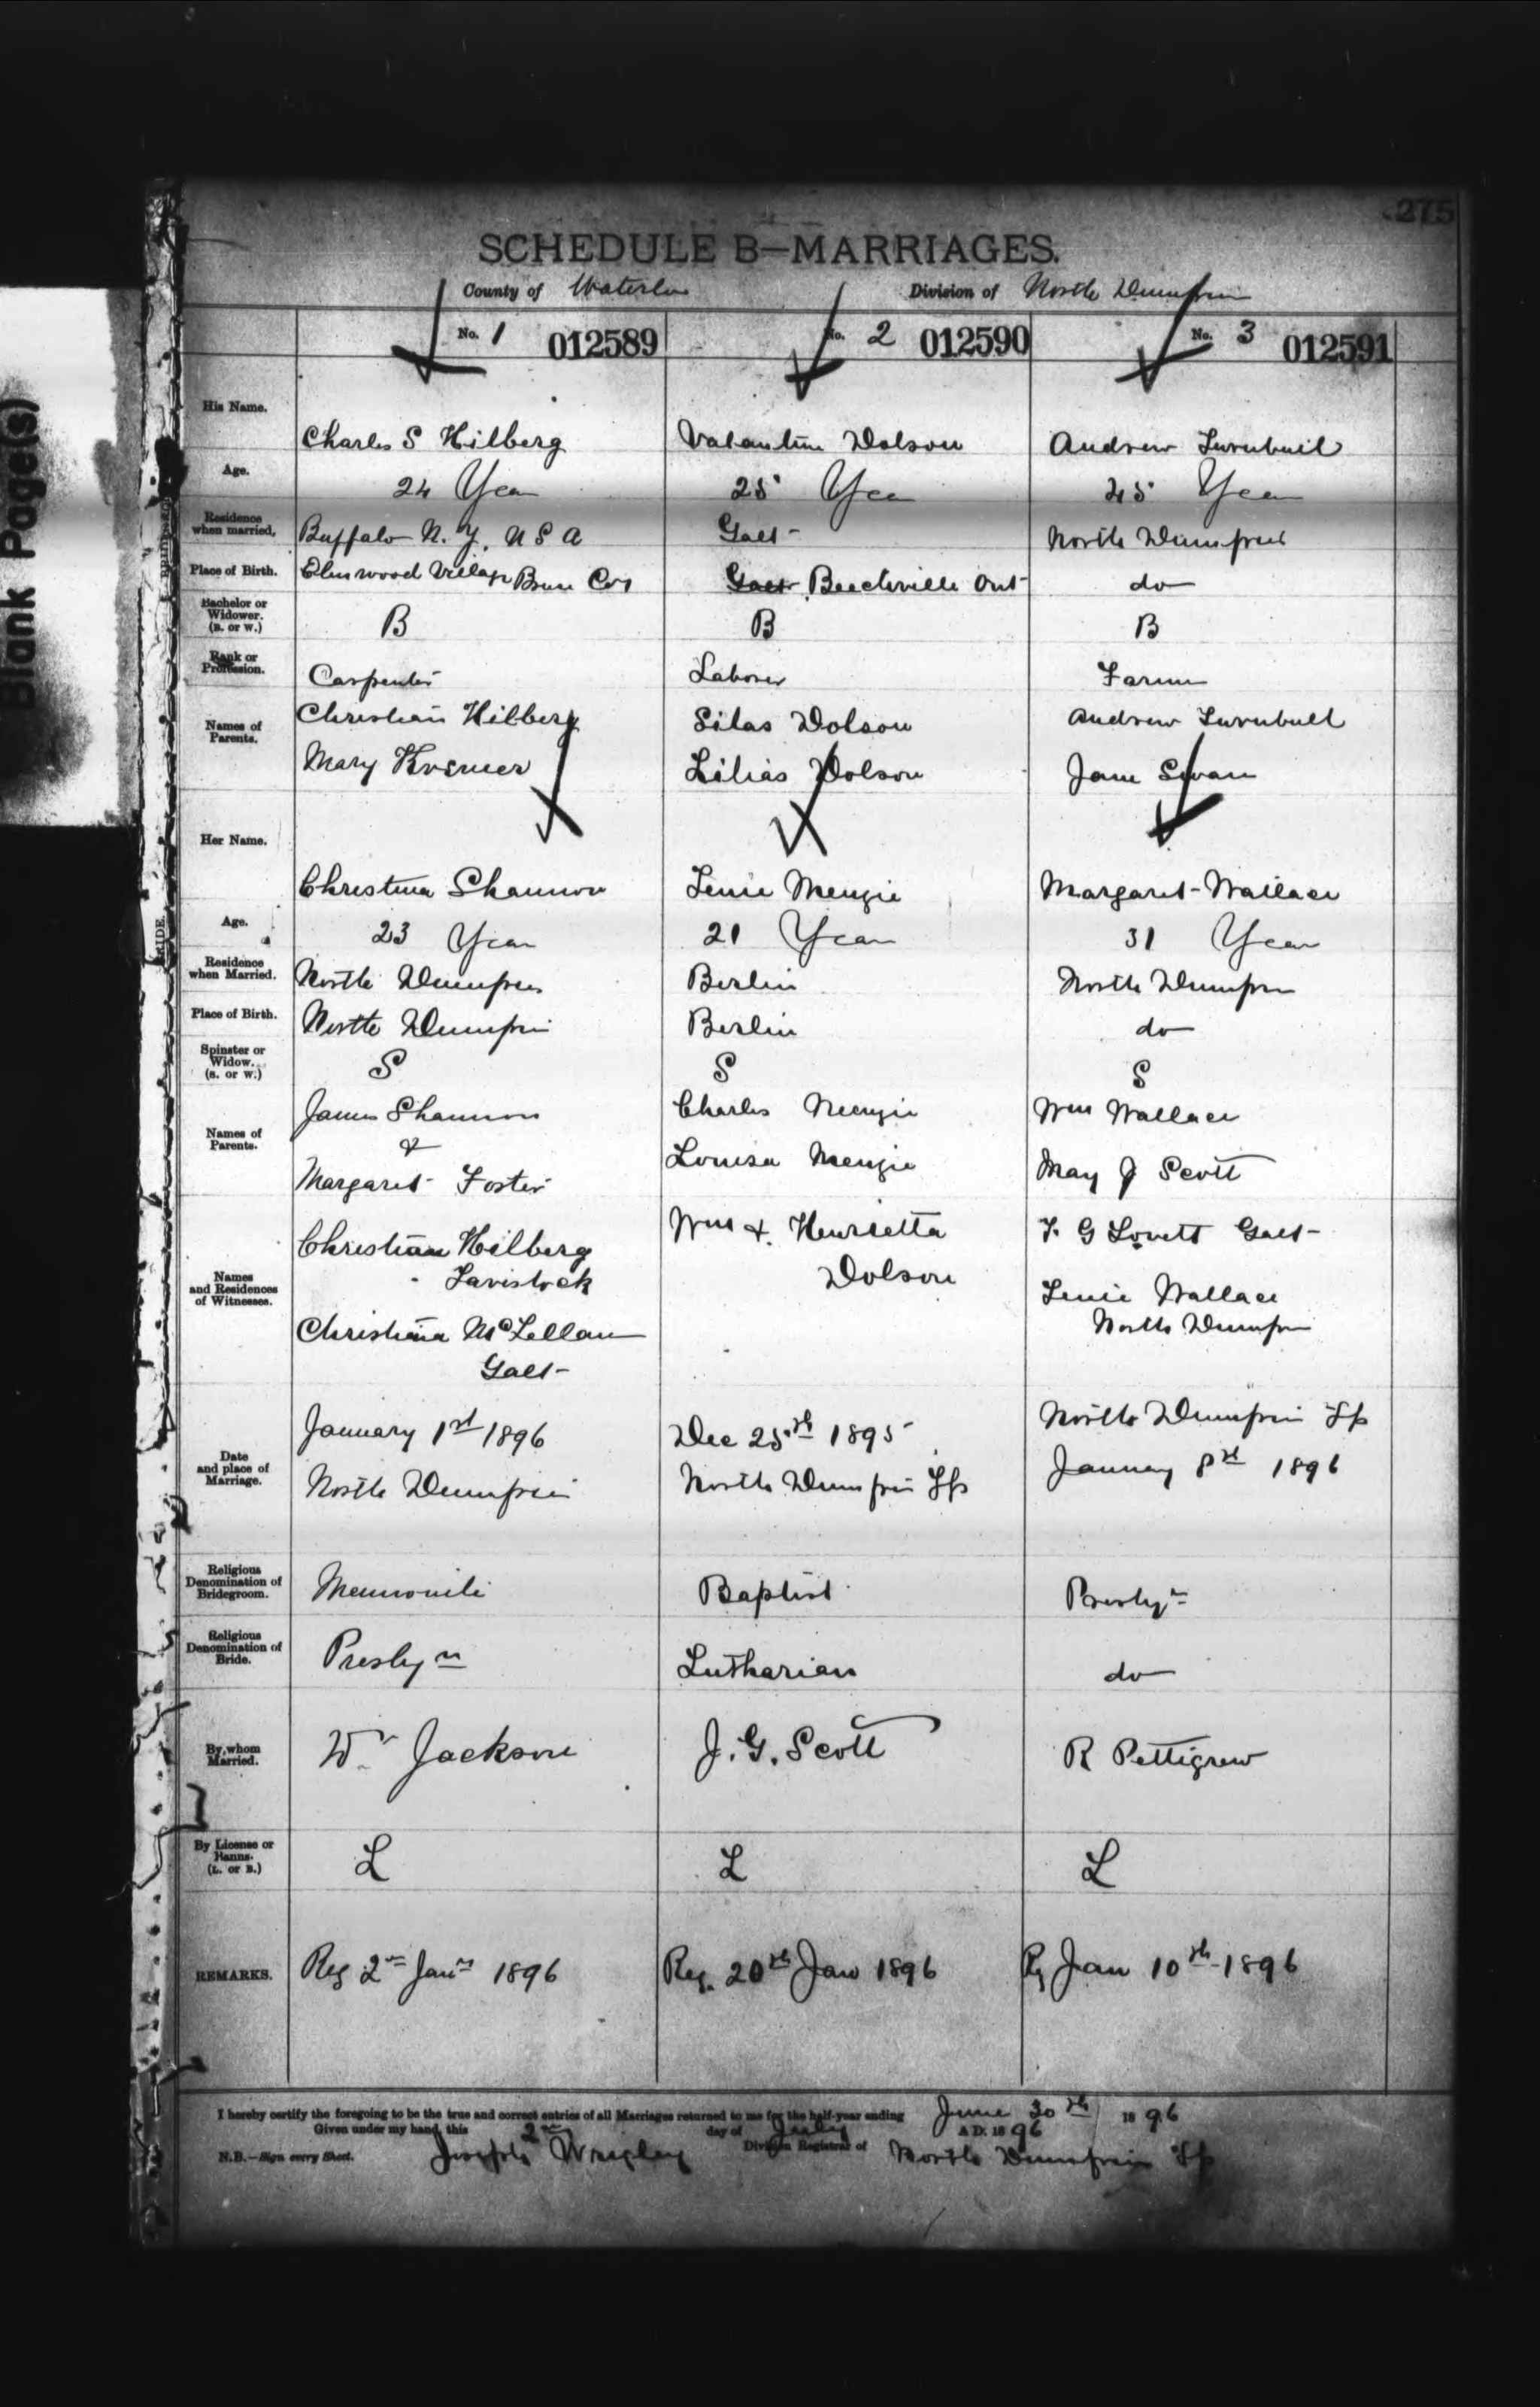 275
SCHEDULE B—MARRIAGES.
County of Waterloo Division of North Dumfries
No. 1 012589 No. 2 012590 No. 3 012591
His Name. Charles S Hilberg Valantine Dolson Andrew Turnbull
Age. 24 Year 25 Year 45 Year
Residence when married. Buffalo N. Y. U S A Galt North Dumfries
Place of Birth. Elmwood Village Bruce Co Galt Beechville Ont do
Bachelor or Widower. (B. or W.) B B B
Rank or Profession. Carpenter Laborer Farmer
Names of Parents. Christian Hilberg Silas Dolson Andrew Turnbull
Mary Kremer Lilias Dolson Jane Swan
Her Name. Christina Shannon Lenie Mengie Margaret Wallace
Age. 23 Year 21 Year 31 Year
Residence when Married. North Dumfries Berlin North Dumfries
Place of Birth. North Dumfries Berlin do
Spinster or Widow. (S. or W.) S S S
Names of Parents. James Shannon Charles Mengie Wm Wallace
&
Margaret Foster Louisa Mengie May J Scott
Names and Residences of Witnesses. Christian Hilberg Wm & Henrietta F. G Lovett Galt
Tavistock Dolson Lenie Wallace
Christina McLellan North Dumfries
Galt
Date and place of Marriage. January 1st 1896 Dec 25th 1895 North Dumfries Tp
North Dumfries North Dumfries Tp January 8th 1896
Religious Denomination of Bridegroom. Mennonite Baptist Presbyn
Religious Denomination of Bride. Presbyn Lutharian do
By whom Married. Wm Jackson J. G. Scott R Pettigrew
By License or Banns. (L. or B.) L L L
REMARKS. Reg 2nd Jany 1896 Reg. 20th Jan 1896 Rg Jan 10th 1896
I hereby certify the foregoing to be the true and correct entries of all Marriages returned to me for the half-year ending June 30th 1896
Given under my hand, this 2nd day of July A.D. 1896
N.B.—Sign every Sheet. Joseph Wrigley Division Registrar of North Dumfries Tp
Blank Page(s)
BRIDE.